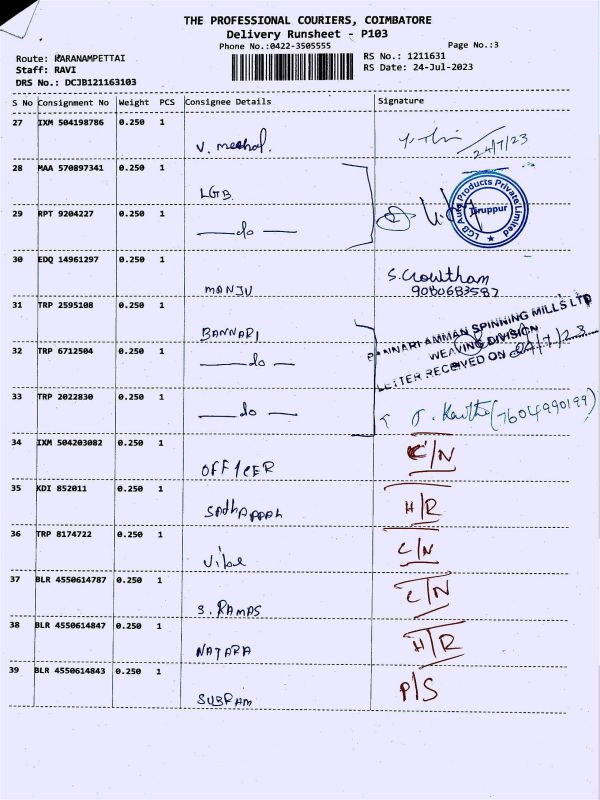 THE PROFESSIONAL COURIERS, COIMBATORE
Delivery Runsheet - P103
Phone No.:0422-3505555
Page No.:3
Route: KARANAMPETTAI
RS No.: 1211631
Staff: RAVI
RS Date: 24-Jul-2023
DRS No.: DCJB121163103
S No Consignment No Weight PCS Consignee Details Signature
27 IXM 504198786 0.250 1
V. meehal. 24/7/23
28 MAA 570897341 0.250 1
LGB
29 RPT 9204227 0.250 1
— do —
LGB Auto Products Private Limited
Tiruppur
30 EDQ 14961297 0.250 1
MANJU S. Gowtham
9080683587
31 TRP 2595108 0.250 1
BANNARI
BANNARI AMMAN SPINNING MILLS LTD
WEAVING DIVISION
LETTER RECEIVED ON 24/7/23
32 TRP 6712504 0.250 1
— do —
33 TRP 2022830 0.250 1
— do — (7604990199)
34 IXM 504203082 0.250 1
OFFICER C/N
35 KDI 852011 0.250 1
H/R
36 TRP 8174722 0.250 1
C/N
37 BLR 4550614787 0.250 1
S. RAMAS C/N
38 BLR 4550614847 0.250 1
NATARA H/R
39 BLR 4550614843 0.250 1
SUBRAM P/S